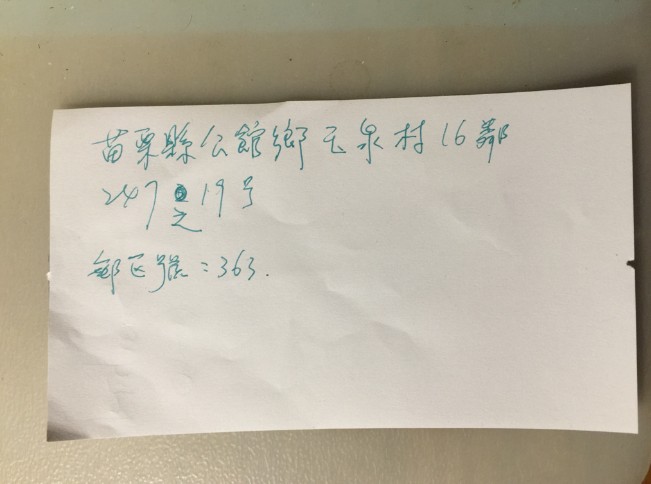 苗栗縣公館鄉玉泉村16鄰
247之19号
郵区號:363.